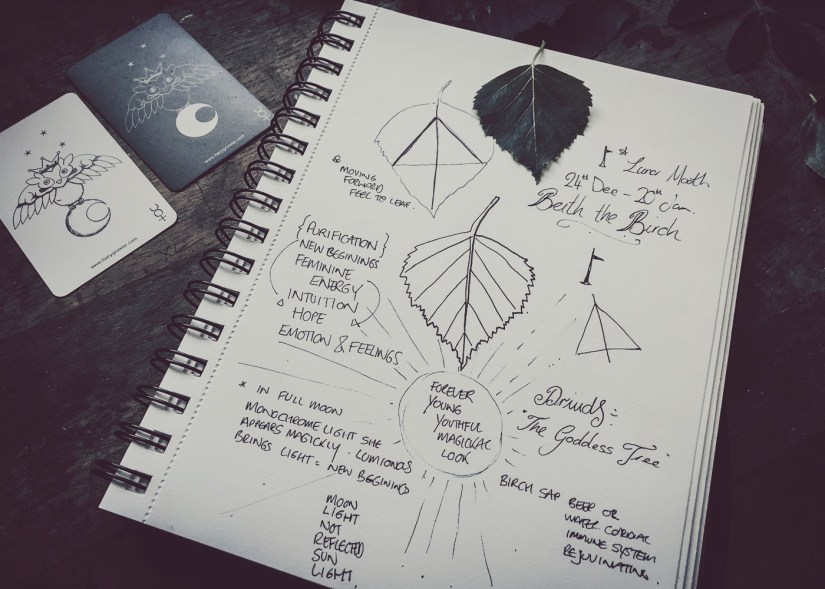 1st Lunar Month
24th Dec - 20th Jan.
Beith the Birch
@ MOVING
FORWARD
FEEL TO LEAF.
{PURIFICATION}
NEW BEGININGS
FEMININE
ENERGY
INTUITION
HOPE
EMOTION & FEELINGS
FOREVER
YOUNG
YOUTHFUL
MAGICKAL
LOOK
Driuds =
"The Goddess Tree"
* IN FULL MOON
MONOCHROME LIGHT SHE
APPEARS MAGICKLY. LUMIONOS
BRINGS LIGHT = NEW BEGININD
MOON
LIGHT
NOT
REFLECTED
SUN
LIGHT.
BIRCH SAP BEER OR
WATER CORDIAL
IMMUNE SYSTEM
REJUVINATING.